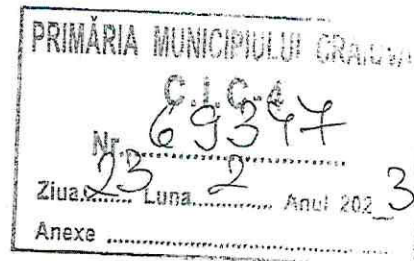 PRIMĂRIA MUNICIPIULUI CRAIOVA
C.I.C.-4
Nr. 69347
Ziua 23 Luna 2 Anul 2023
Anexe